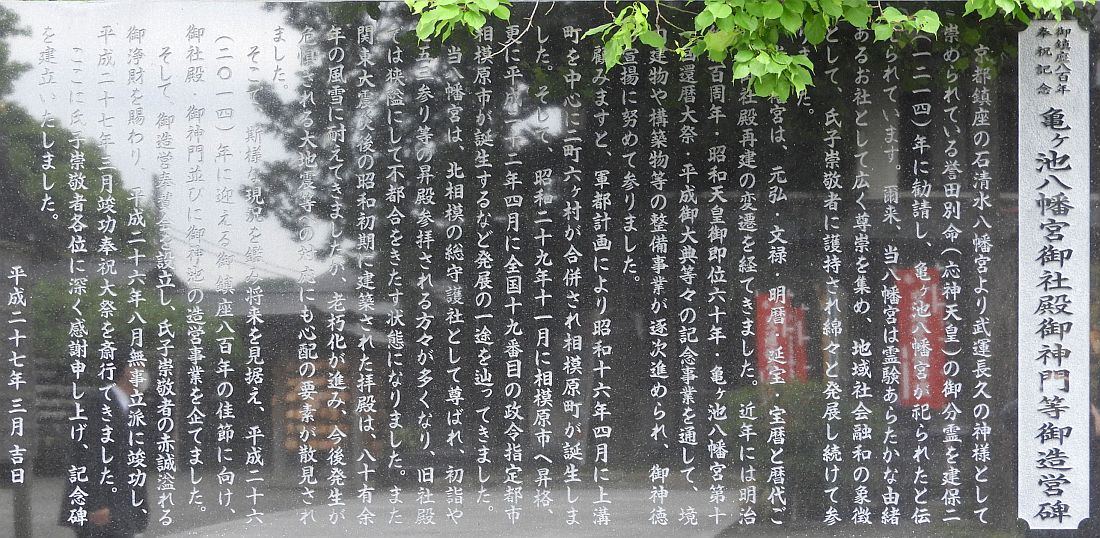 御鎮座八百年
奉祝記念
亀ヶ池八幡宮御社殿御神門等御造営碑
京都鎮座の石清水八幡宮より武運長久の神様として
崇められている誉田別命(応神天皇)の御分霊を建保二
(一二一四)年に勧請し、亀ヶ池八幡宮が祀られたと伝
られています。爾来、当八幡宮は霊験あらたかな由緒
あるお社として広く尊崇を集め、地域社会融和の象徴
として、氏子崇敬者に護持され綿々と発展し続けて参
ました。
宮は、元弘・文禄・明暦・延宝・宝暦と暦代ご
社殿再建の変遷を経てきました。近年には明治
百周年・昭和天皇御即位六十年・亀ヶ池八幡宮第十
当還暦大祭・平成御大典等々の記念事業を通して、境
建物や構築物等の整備事業が逐次進められ、御神徳
宣揚に努めて参りました。
顧みますと、軍都計画により昭和十六年四月に上溝
町を中心に二町六ヶ村が合併され相模原町が誕生しま
した。そして、昭和二十九年十一月に相模原市へ昇格、
更に平成二十二年四月に全国十九番目の政令指定都市
相模原市が誕生するなど発展の一途を辿ってきました。
当八幡宮は、北相模の総守護社として尊ばれ、初詣や
七五三参り等の昇殿参拝される方々が多くなり、旧社殿
では狭隘にして不都合をきたす状態になりました。また
関東大震災後の昭和初期に建築された拝殿は、八十有余
年の風雪に耐えてきましたが、老朽化が進み、今後発生が
危惧される大地震等への対応にも心配の要素が散見され
ました。
そこで、斯様な現況を鑑み将来を見据え、平成二十六
(二〇一四)年に迎える御鎮座八百年の佳節に向け、
御社殿、御神門並びに御神池の造営事業を企てました。
そして、御造営奉賛会を設立し、氏子崇敬者の赤誠溢れる
御浄財を賜わり、平成二十六年八月無事立派に竣功し、
平成二十七年三月竣功奉祝大祭を斎行できました。
ここに氏子崇敬者各位に深く感謝申し上げ、記念碑
を建立いたしました。
平成二十七年三月吉日